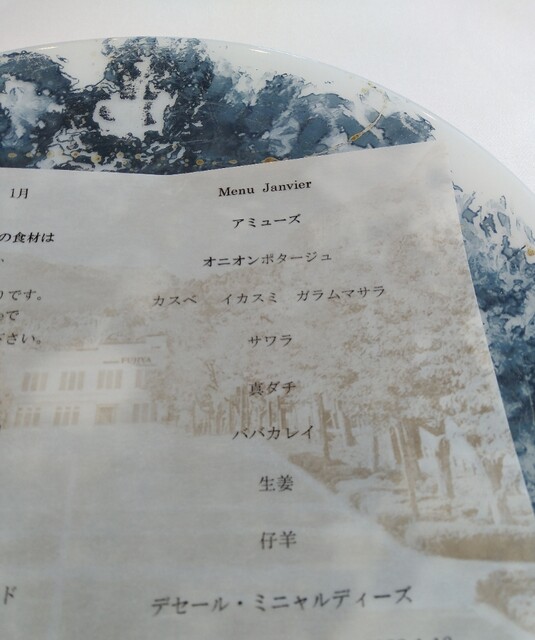 1月
の食材は
りです。
で
ださい。
ド
Menu Janvier
アミューズ
オニオンポタージュ
カスベ イカスミ ガラムマサラ
サワラ
真ダチ
ババカレイ
生姜
仔羊
デセール・ミニャルディーズ
FUJIYA